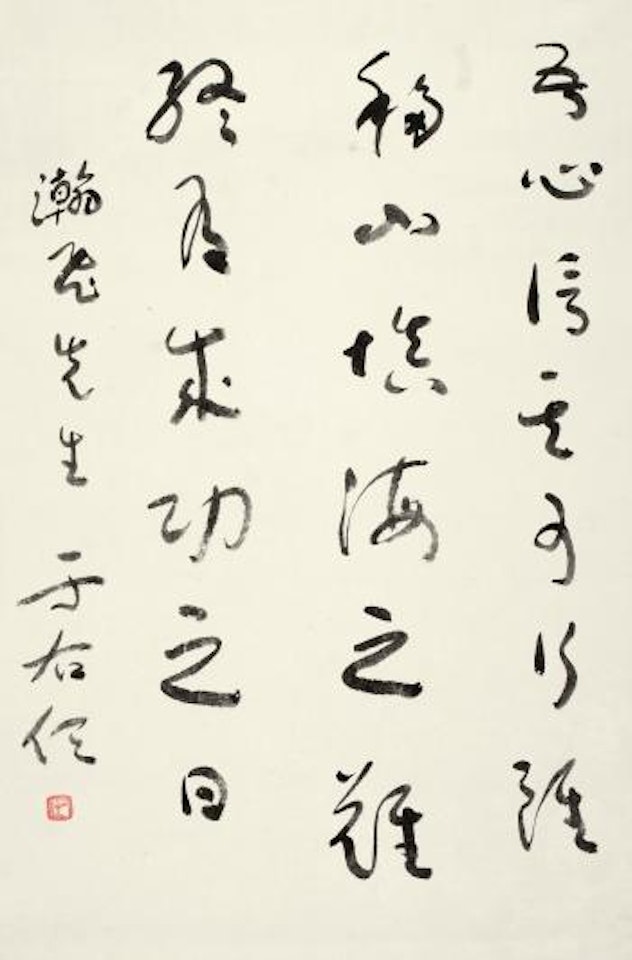 吾心信其可行雖
移山填海之難
終有成功之日
瀚先生 于右任